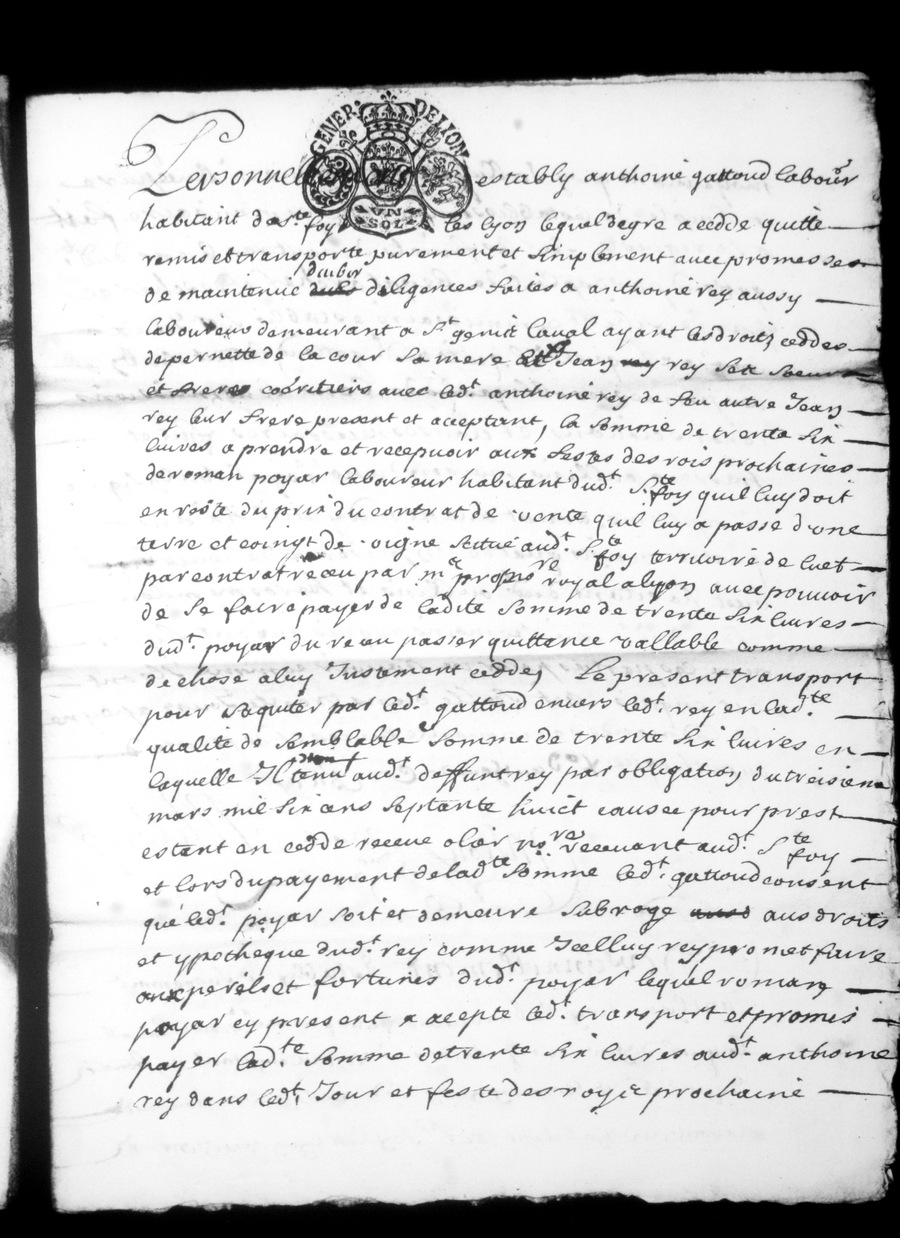 GENER. DE LION
UN
SOL
Personnellement establÿ anthoine gattoud labour
habitant de ste foy les lyon lequel de gre a cedde quitte
remis et transporte purement et simplement avec promesses
de maintenir diligences faites a anthoine rey aussy
laboureur demeurant a st genict laval ayant les droits ceddes
de pernette de la cour sa mere Jean rey ses soeur
et freres coeritiers avec led.t anthoine rey de feu autre Jean
rey leur frere present et acceptant, la somme de trente six
livres a prendre et recepvoir aux festes des rois prochaines
de roman poyar laboureur habitant dud.t ste foy quil luy doit
en reste du prix du contrat de vente quil luy a passe dune
terre et coingt de vigne scitue aud.t ste foy territoire de
par contrat receu par me no.re royal a lyon avec pouvoir
de se faire payer de ladite somme de trente six livres
dud.t poyar du receu passer quittance vallable comme
de chose a luy Justement ceddes Le present transport
pour saquiter par led.t gattoud envers led.t rey en lad.te
qualite de semblable somme de trente six livres en
laquelle Il tenu aud.t deffunt rey par obligation du treisiem
mars mil six ans septante huict causee pour prest
estant en cedde receue no.re recevant aud.t ste foy
et lors du payement de lad.te somme led.t gattoud consent
que led.t poyar soit et demeure subroge aus droits
et ypocheque dud.t rey comme Icelluy rey promet faire
aux perils et fortunes dud.t poyar lequel roman
poyar cy present a acepte led.t transport et promis
payer lad.te somme de trente six livres aud.t anthoine
rey dans led.t Jour et feste des roys prochaine